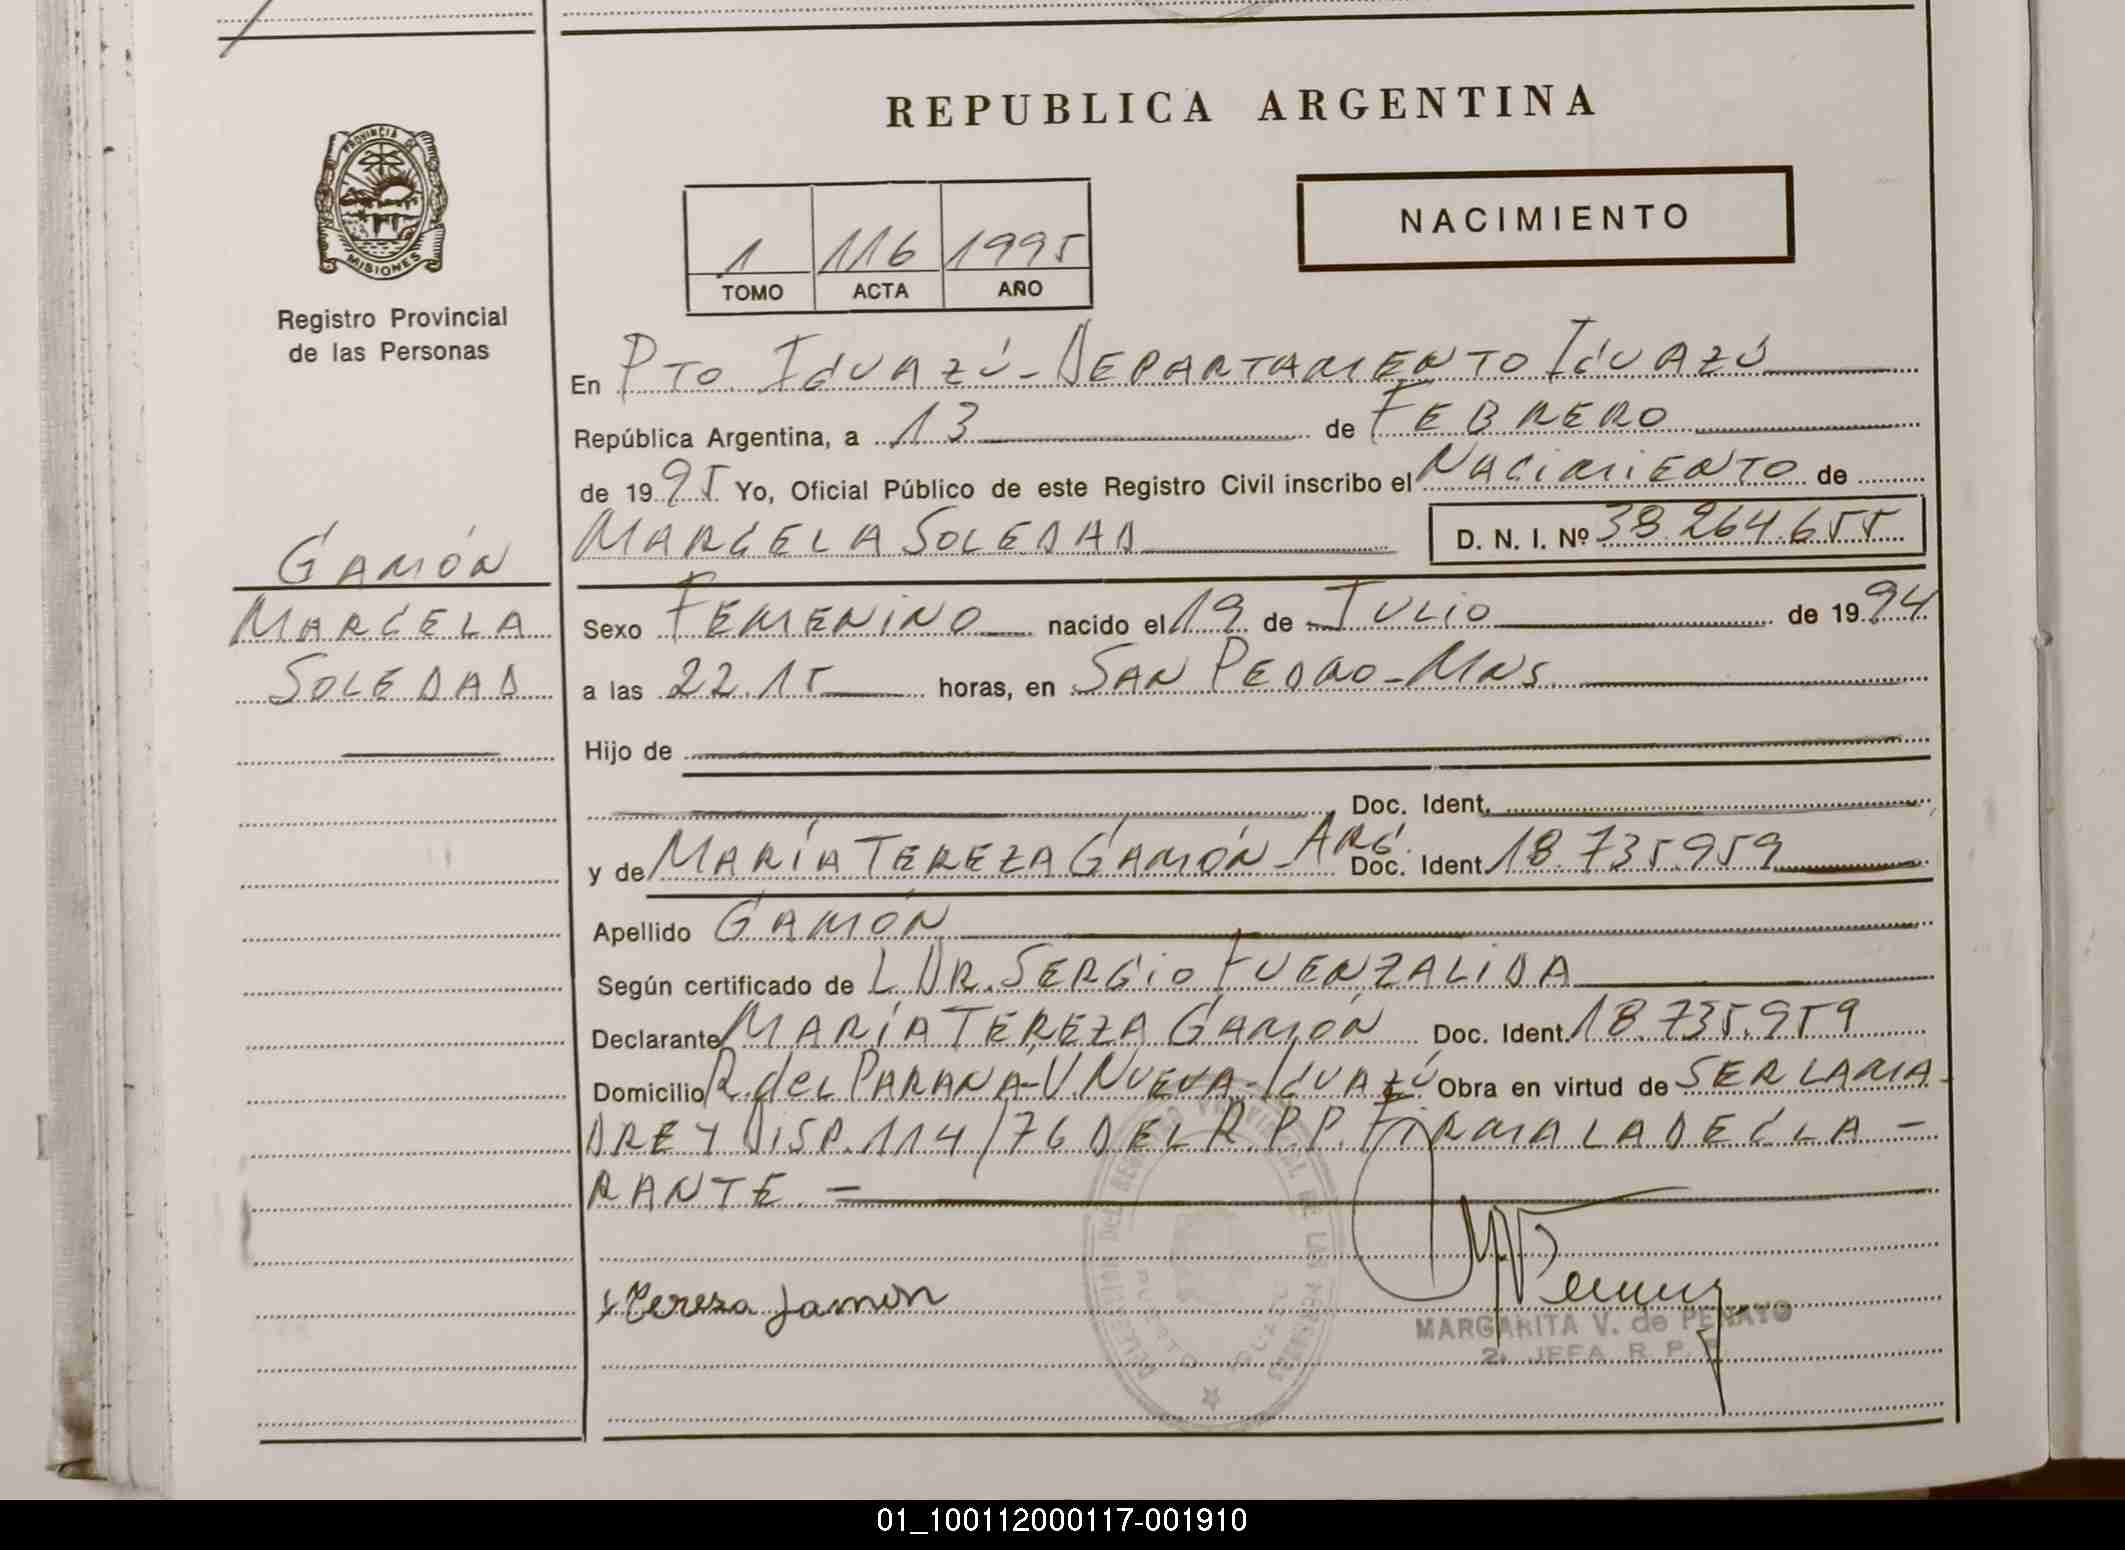 REPUBLICA ARGENTINA
PROVINCIA DE
MISIONES
Registro Provincial
de las Personas
NACIMIENTO
1 116 1995
TOMO ACTA AÑO
En Pto. Iguazú - Departamento Iguazú
República Argentina, a 13 de Febrero
de 1995 Yo, Oficial Público de este Registro Civil inscribo el Nacimiento de
Marcela Soledad D. N. I. Nº 38.264.655
Gamón
Marcela
Soledad
Sexo Femenino nacido el 19 de Julio de 1994
a las 22.15 horas, en San Pedro - Mns.
Hijo de
Doc. Ident.
y de María Tereza Gamón - Arg. Doc. Ident. 18.735.959
Apellido Gamón
Según certificado de L. Dr. Sergio Fuenzalida
Declarante María Tereza Gamón Doc. Ident. 18.735.959
Domicilio R. del Paraná - V. Nueva - Iguazú Obra en virtud de ser la ma-
dre y Disp. 114/76 del R.P.P. Firma la decla-
rante. -
x Tereza Gamon
MARGARITA V. de PENAYO
2. JEFA R. P. P.
DELEGACION DEL REGISTRO PROVINCIAL DE LAS PERSONAS
PUERTO IGUAZU
01_100112000117-001910